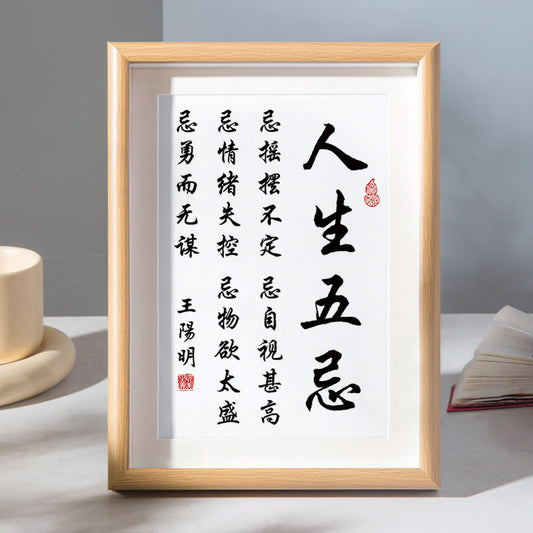 人生五忌
忌摇摆不定 忌自视甚高
忌情绪失控 忌物欲太盛
忌勇而无谋
王陽明